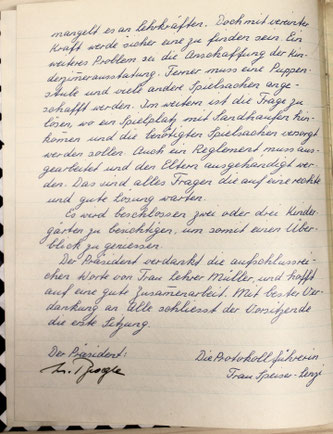 mangelt es an Lehrkräften. Doch mit vereinter
Kraft werde sicher eine zu finden sein. Ein
weiteres Problem sei die Anschaffung der Kin-
derzimmerausstattung. Ferner muss eine Puppen-
stube und viele andere Spielsachen ange-
schafft werden. Im weitern ist die Frage zu
lösen, wo ein Spielplatz mit Sandhaufen hin-
kömmen und die benötigten Spielsachen versorgt
werden sollen. Auch ein Reglement muss aus-
gearbeitet und den Eltern ausgehändigt wer-
den. Das sind alles Fragen die auf eine rechte
und gute Lösung warten.
Es wird beschlossen zwei oder drei Kinder-
gärten zu besichtigen, um somit einen Über-
blick zu geniessen.
Der Präsident verdankt die aufschlussrei-
chen Worte von Frau Lehrer Müller, und hofft
auf eine gute Zusammenarbeit. Mit bester Ver-
dankung an Alle schliesst der Vorsitzende
die erste Sitzung.
Der Präsident: Die Protokollführerin
Frau Speiser-Senzi